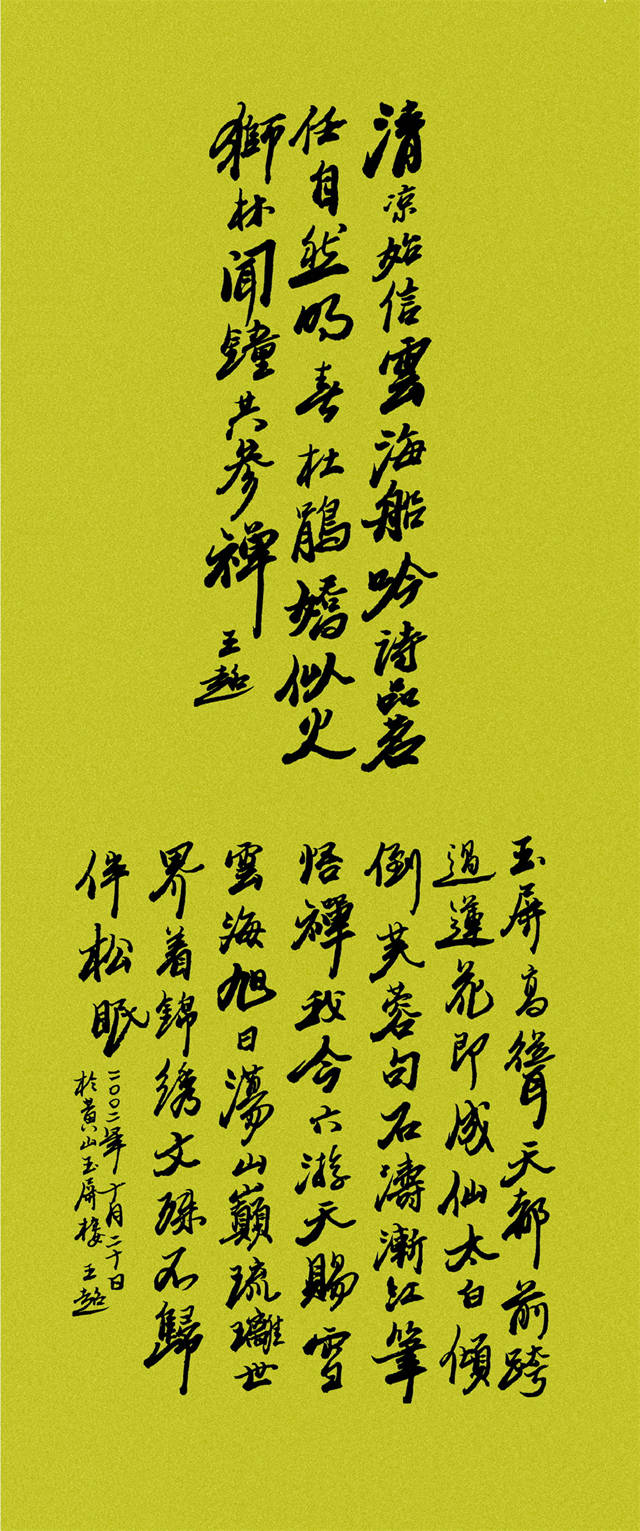 清凉始信雲海船吟詩品茗
任自然明春杜鵑嬌似火
獅林聞鐘共參禪
王超
玉屏高聳天都前跨
過蓮花即成仙太白傾
倒芙蓉句石濤漸江筆
悟禪我今六游天賜雪
雲海旭日蕩山巔琉璃世
界着錦绣文殊不歸
伴松眠
二〇〇二年十月二十日
於黄山玉屏楼王超